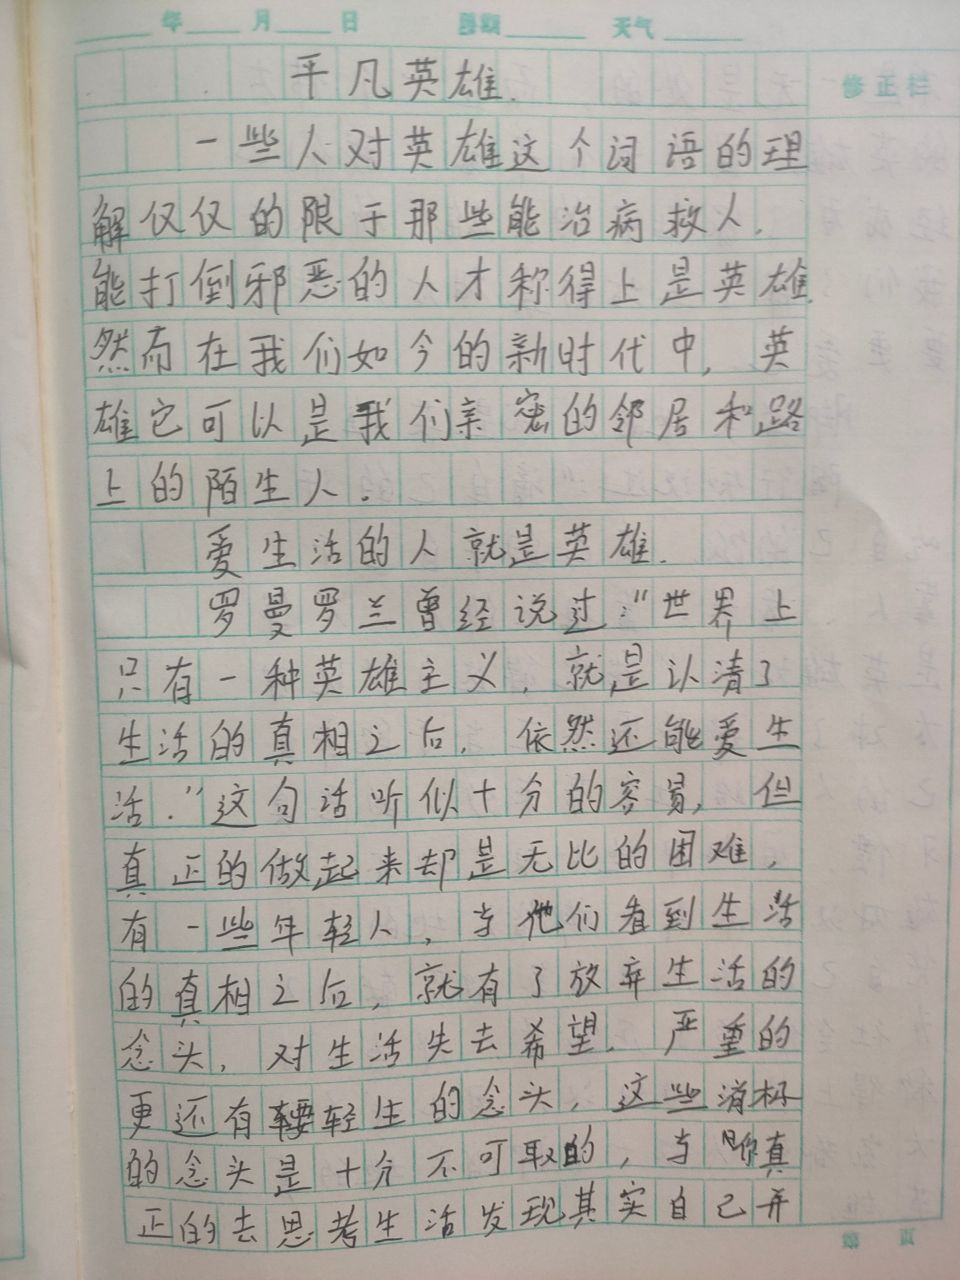 年 月 日 星期 天气
平凡英雄.
修正栏
一些人对英雄这个词语的理
解仅仅的限于那些能治病救人.
能打倒邪恶的人才称得上是英雄.
然而在我们如今的新时代中，英
雄它可以是我们亲密的邻居和路
上的陌生人.
爱生活的人就是英雄.
罗曼罗兰曾经说过："世界上
只有一种英雄主义，就是认清了
生活的真相之后，依然还能爱生
活."这句话听似十分的容易，但
真正的做起来却是无比的困难，
有一些年轻人，当他们看到生活
的真相之后，就有了放弃生活的
念头，对生活失去希望.严重的
更还有轻生的念头，这些消极
的念头是十分不可取的，当你真
正的去思考生活发现其实自己并
第 页